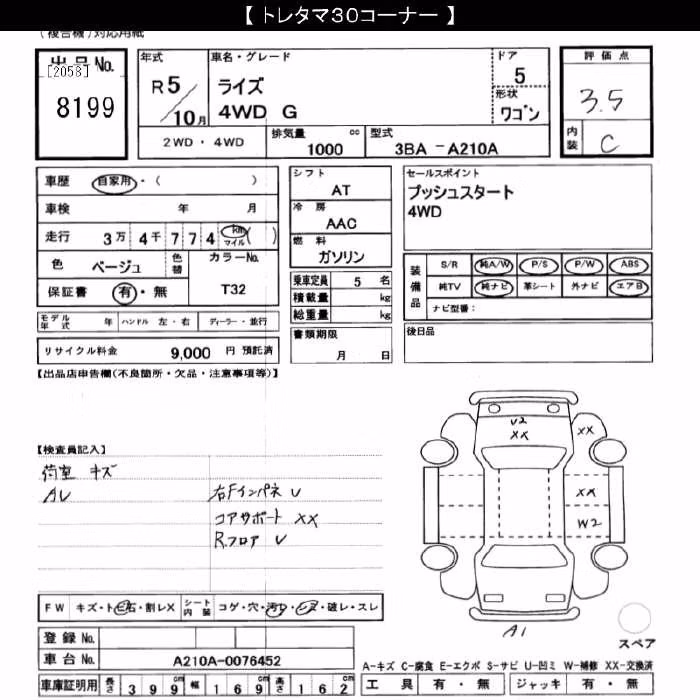 【 トレタマ30コーナー 】
(複合機)対応用紙
出品No. [2058] 8199
年式 R 5 / 10 月
車名・グレード
ライズ
4WD G
ドア 5
形状 ワゴン
評価点
3.5
内装 C
2WD ・ 4WD 排気量 1000 cc 型式 3BA -A210A
車歴 自家用・( )
車検 年 月
走行 3万 4千 7 7 4 km マイル ( )
色 ベージュ 色替 カラーNo. T32
保証書 有・無
モデル年式 年 ハンドル 左・右 ディーラー・並行
リサイクル料金 9,000 円 預託済
シフト
AT
冷房
AAC
燃料
ガソリン
乗車定員 5 名
積載量 kg
総重量 kg
書類期限
月 日
セールスポイント
プッシュスタート
4WD
装備品 S/R 純A/W P/S P/W ABS
純TV 純ナビ 革シート 外ナビ エアB
ナビ型番:
後日品
【出品店申告欄(不良箇所・欠品・注意事項等)】
【検査員記入】
荷室 キズ
AU
右Fインパネ U
コアサポート XX
Rフロア U
U2
XX
XX
XX
W2
A1
スペア
FW キズ・トビ石・割レX シート内装 コゲ・穴・汚レ・シミ・破レ・スレ
登録No.
車台No. A210A-0076452
車庫証明用 長さ 3 9 9 cm 幅 1 6 9 cm 高さ 1 6 2 cm
A-キズ C-腐食 E-エクボ S-サビ U-凹ミ W-補修 XX-交換済
工具 有・無 ジャッキ 有・無